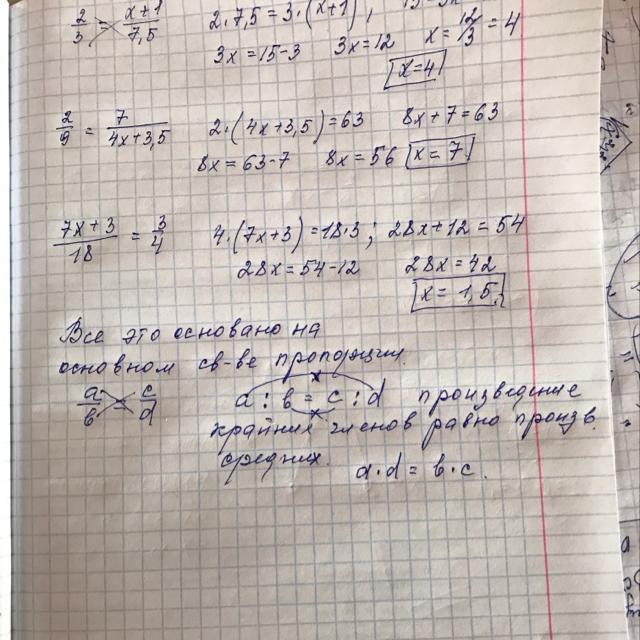 2/3 = x+1/7,5 2·7,5 = 3·(x+1);
3x = 15-3 3x = 12 x = 12/3 = 4
x=4
2/9 = 7/4x+3,5 2·(4x+3,5) = 63 8x+7 = 63
8x = 63-7 8x = 56 x = 7
7x+3/18 = 3/4 4·(7x+3) = 18·3; 28x+12 = 54
28x = 54-12 28x = 42
x = 1,5
Все это основано на
основном св-ве пропорции.
a/в = c/d a : в = c : d произведение
крайних членов равно произв.
средних. a·d = в·c.